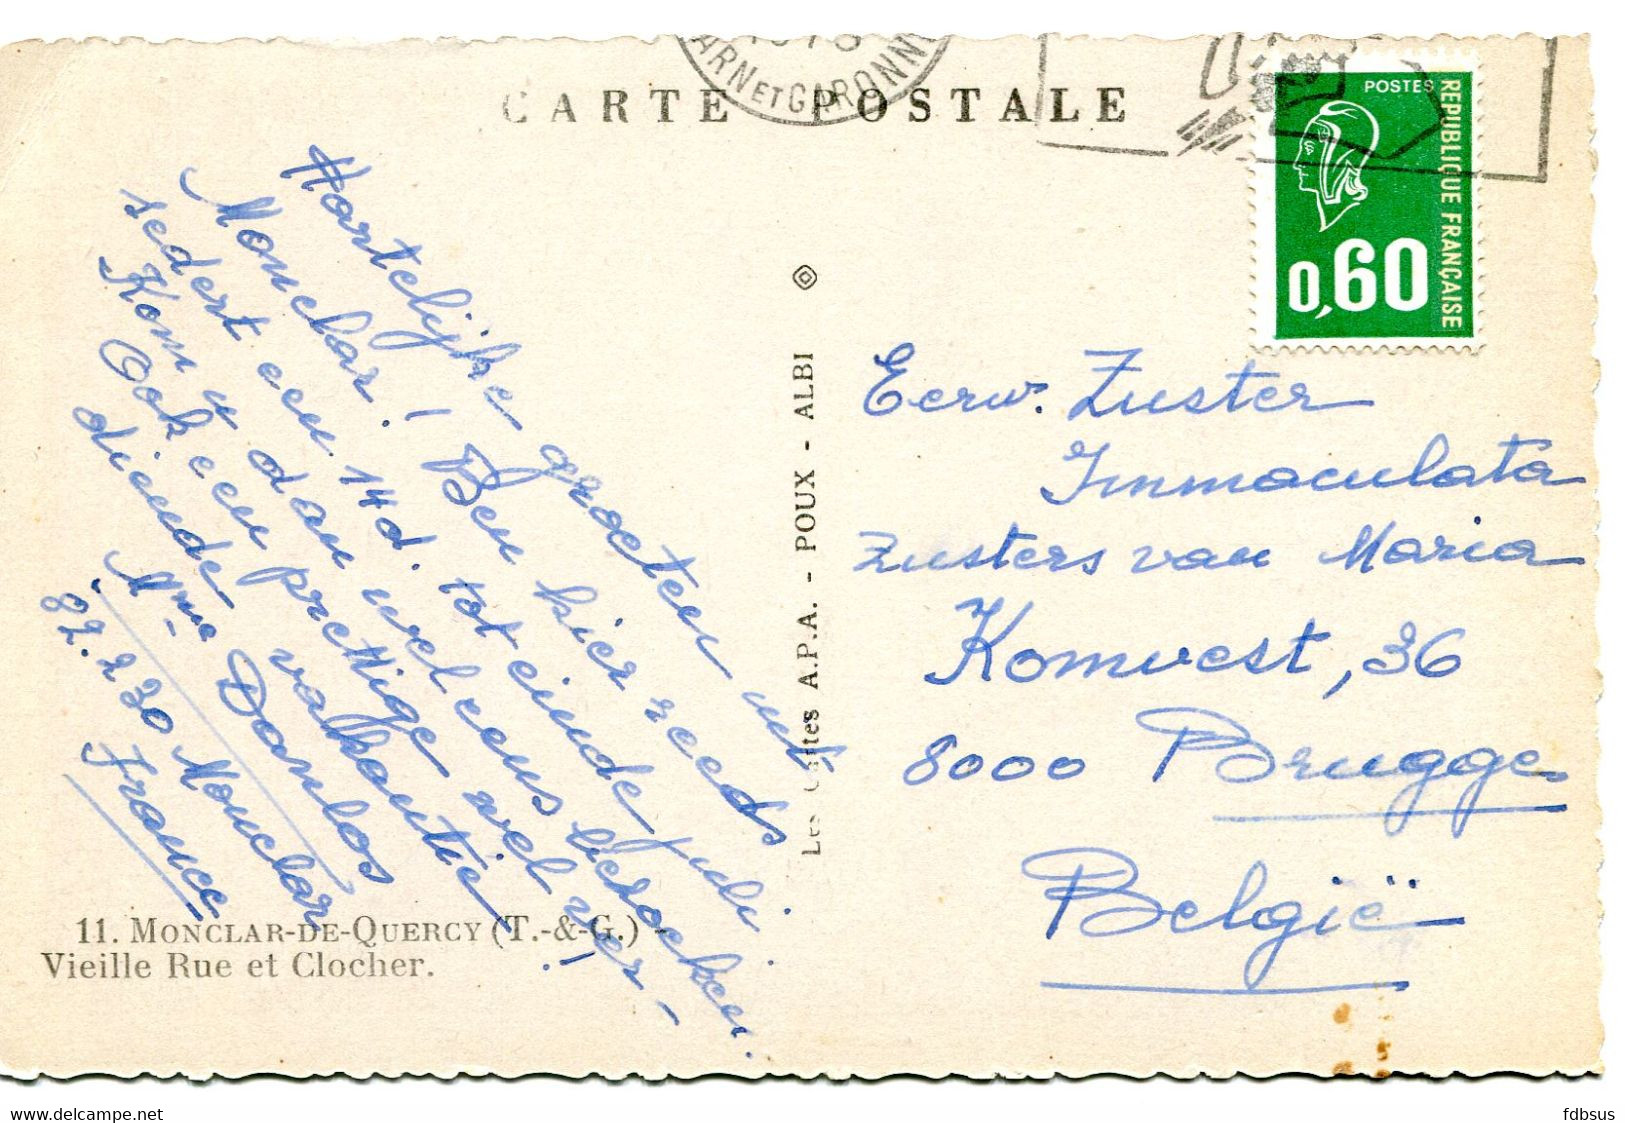 CARTE POSTALE
ARN ET GARONN
POSTES
REPUBLIQUE FRANÇAISE
0,60
Hartelijke groeten uit
Monclar! Ben hier reeds
sedert een 14d. tot einde juli.
Kom u dan wel eens bedoeken.
Ook een prettige wel ver-
diende vakantie!
Mme Danlos
82.230 Monclar
France
Eerw. Zuster
Immaculata
Zusters van Maria
Komvest, 36
8000 Brugge
België
Les Cartes A.P.A. - POUX - ALBI
11. MONCLAR-DE-QUERCY (T.-&-G.) -
Vieille Rue et Clocher.
fdbsus